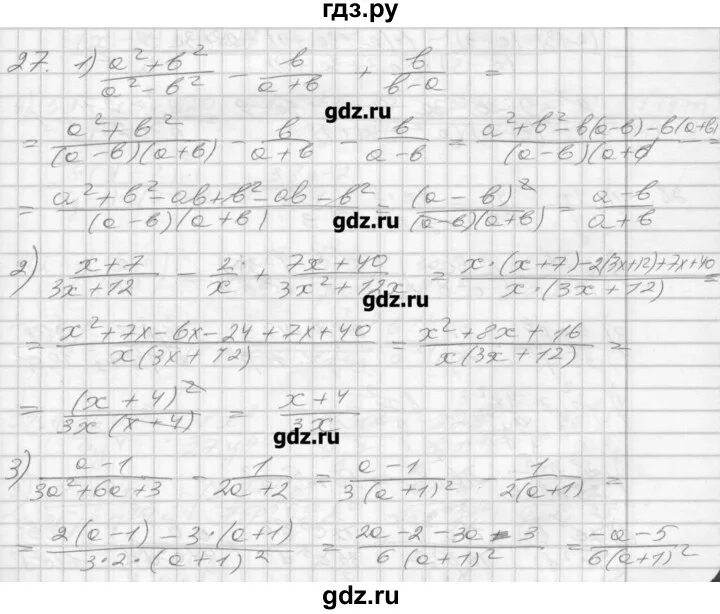 гдз.ру
27. 1) (a² + b²)/(a² - b²) - b/(a + b) + b/(b - a) =
gdz.ru
= (a² + b²)/((a - b)(a + b)) - b/(a + b) - b/(a - b) = (a² + b² - b(a - b) - b(a + b))/((a - b)(a + b)) =
gdz.ru
= (a² + b² - ab + b² - ab - b²)/((a - b)(a + b)) = (a - b)²/((a - b)(a + b)) = (a - b)/(a + b)
gdz.ru
2) (x + 7)/(3x + 12) - 2/x + (7x + 40)/(3x² + 12x) = (x · (x + 7) - 2(3x + 12) + 7x + 40)/(x · (3x + 12)) =
gdz.ru
= (x² + 7x - 6x - 24 + 7x + 40)/(x(3x + 12)) = (x² + 8x + 16)/(x(3x + 12)) =
= (x + 4)²/(3x(x + 4)) = (x + 4)/(3x)
gdz.ru
3) (a - 1)/(3a² + 6a + 3) - 1/(2a + 2) = (a - 1)/(3(a + 1)²) - 1/(2(a + 1)) =
gdz.ru
= (2(a - 1) - 3 · (a + 1))/(3 · 2 · (a + 1)²) = (2a - 2 - 3a - 3)/(6(a + 1)²) = (-a - 5)/(6(a + 1)²)
gdz.ru